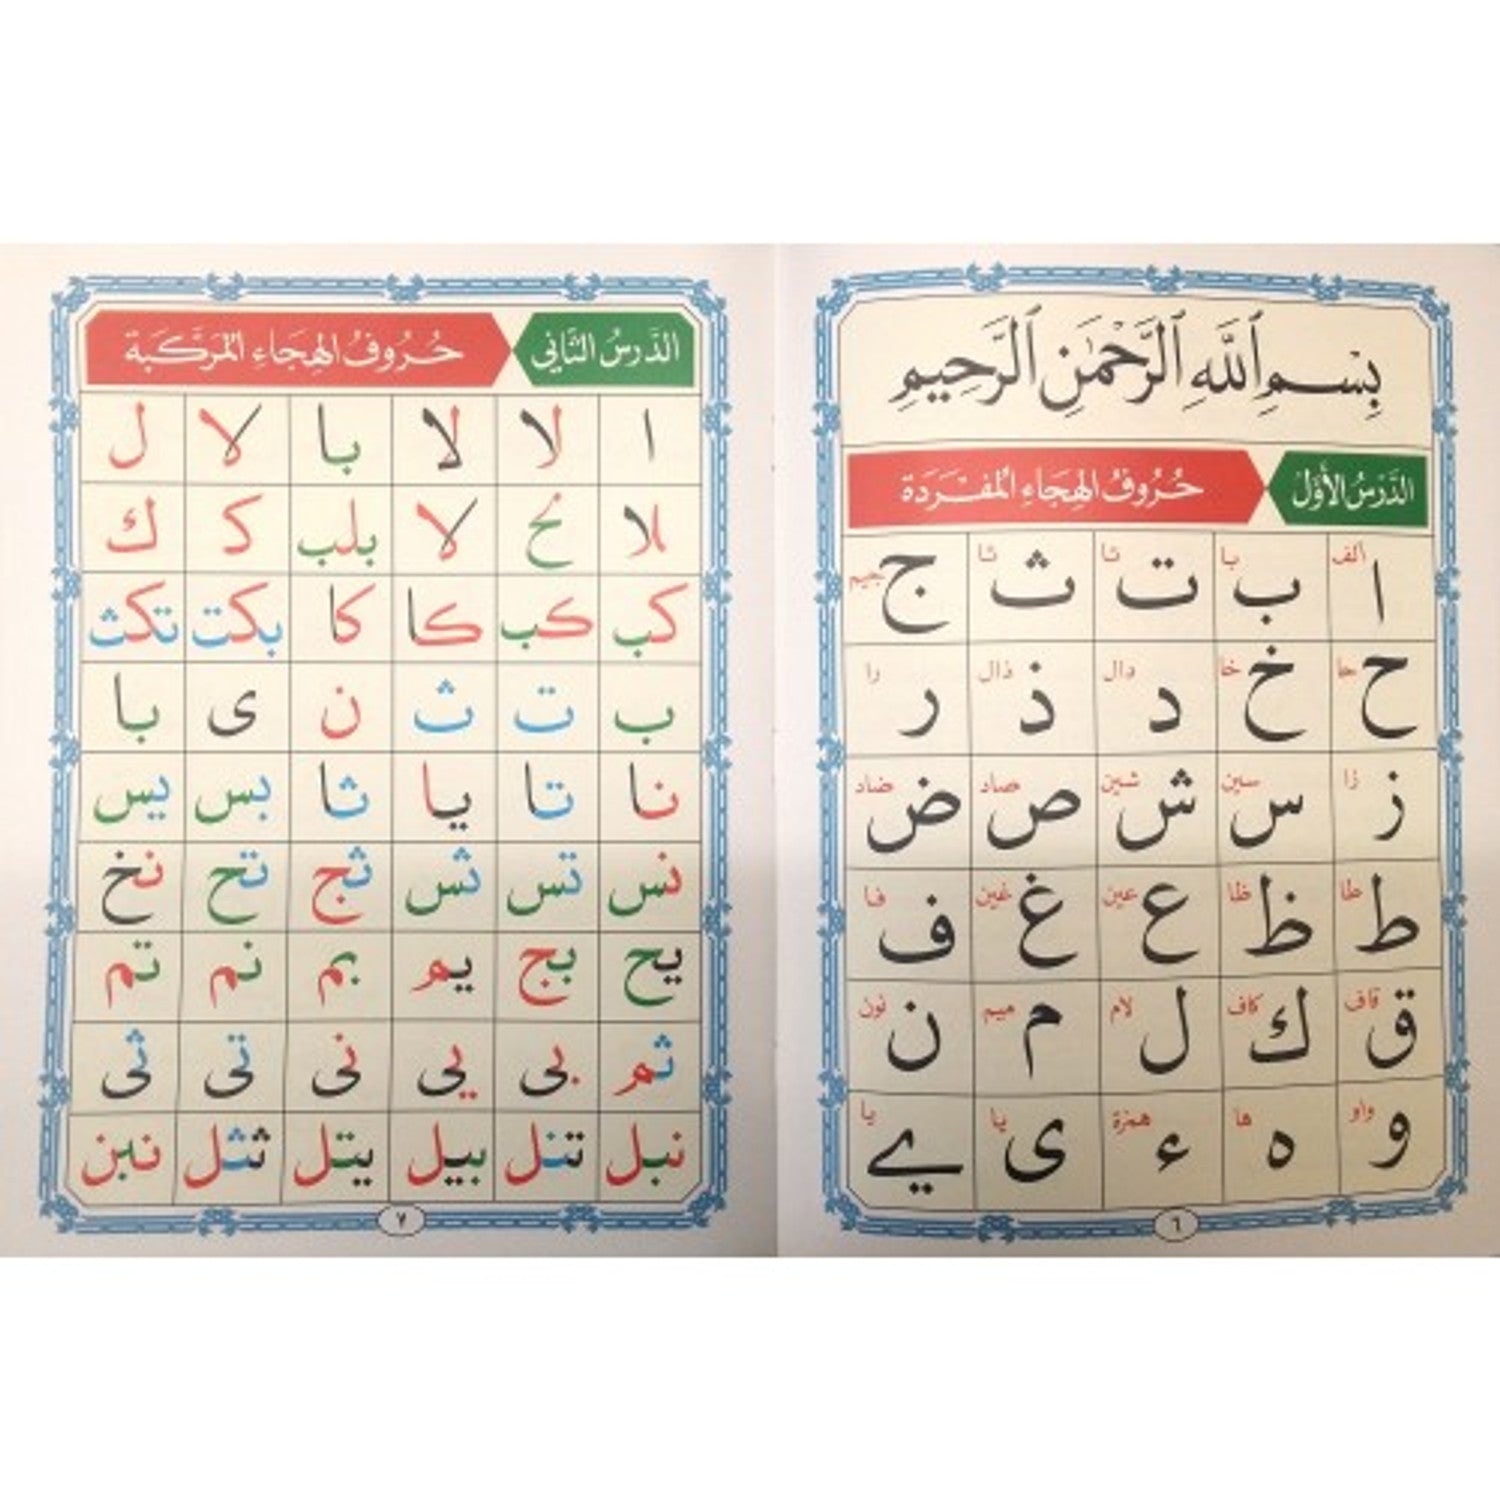 بِسْمِ ٱللَّهِ ٱلرَّحْمَٰنِ ٱلرَّحِيمِ
الدَّرْسُ الأَوَّلُ حُرُوفُ الهِجَاءِ المُفْرَدَة
الف ا با ب تا ت ثا ث جيم ج
حا ح خا خ دال د ذال ذ را ر
زا ز سين س شين ش صاد ص ضاد ض
طا ط ظا ظ عين ع غين غ فا ف
قاف ق كاف ك لام ل ميم م نون ن
واو و ها ه همزة ء يا ى يا ے
٦
الدَّرْسُ الثَّانِي حُرُوفُ الهِجَاءِ المُرَكَّبَة
ا لا لا با لا ل
لا لا بلب كـ ك
كب كب كا كا بكت تكث
ب ت ث ن ى با
نا تا يا ثا بس يس
نس تس ثس ثج تح نخ
يح بج يم بم نم تم
ثم بى يى نى تى ثى
نبل تنل بيل يتل ثثل نبن
٧